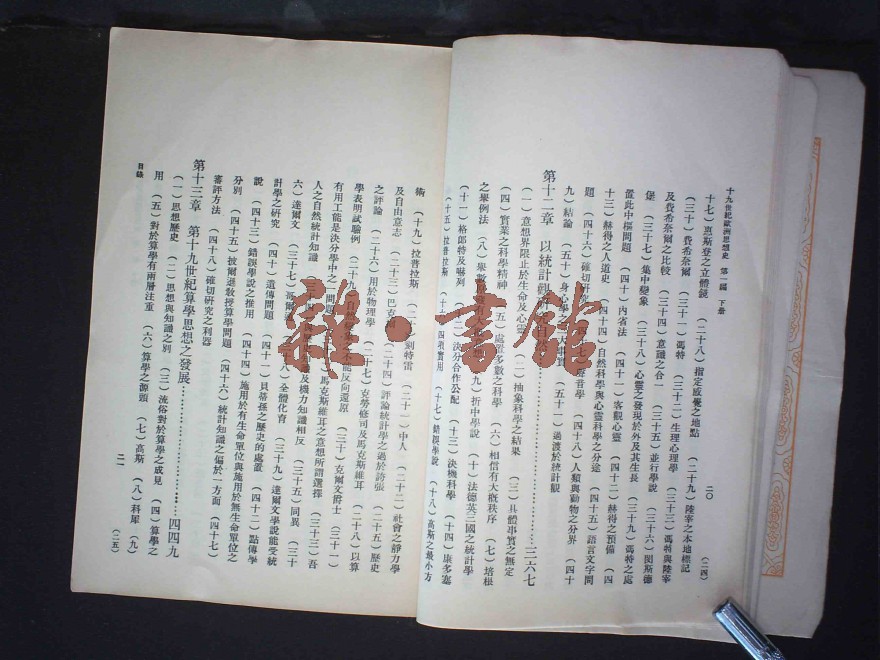 十九世紀歐洲思想史　第一編　下册
二〇
（二四）
十七）惠斯登之立體鏡　（二十八）指定感覺之地點　（二十九）陸宰之本地標記
（三十）費希奈爾　（三十一）馮特　（三十二）生理心理學　（三十三）馮特與陸宰
及費希奈爾之比較　（三十四）意識之合一　（三十五）並行學說　（三十六）
堡　（三十七）集中變象　（三十八）心靈之發現於外及其生長　（三十九）馮特之處
置此中樞問題　（四十）內省法　（四十一）客觀心靈　（四十二）赫得之預備　（四
十三）赫得之人道史　（四十四）自然科學與心靈科學之分途　（四十五）語言文字問
題　（四十六）確切研究　（四十七）聲音學　（四十八）人類與動物之分界　（四十
九）結論　（五十）身心學　（五十一）過渡於統計觀
第十二章　以統計觀　三六七
（一）意想界限止於生命及心靈　（二）抽象科學之結果　（三）具體事實之無定
（四）實業之科學精神　（五）處置多數之科學　（六）相信有大概秩序　（七）培根
之舉例法　（八）　（九）折中學說　（十）法德英三國之統計學
（十一）格郎特及哈列　（十二）決分合作及配　（十三）決機科學　（十四）康多塞
（十五）拉普拉斯　（十六）四項實用　（十七）錯誤學說　（十八）高斯之最小方
術　（十九）拉普拉斯　（二十）刻特雷　（二十一）中人　（二十二）社會之靜力學
及自由意志　（二十三）巴克爾　（二十四）評論統計學之過於誇張　（二十五）歷史
之評論　（二十六）用於物理學　（二十七）克勞修司及馬克斯維耳　（二十八）以算
學表明試驗例　（二十九）自然　不能反向還原　（三十）克爾文爵士　（三十一）
有用工能是決分學中之一問題　馬克斯維耳之意想所謂選擇　（三十三）吾
人之自然統計知識　（三十四）　及機力知識相反　（三十五）同異　（三十
六）達爾文　（三十七）　（三十八）全體化育　（三十九）達爾文學說能受統
計學之研究　（四十）遺傳問題　（四十一）貝蒂孫之歷史的處置　（四十二）點傳學
說　（四十三）錯誤學說之推用　（四十四）施用於有生命單位與施用於無生命單位之
分別　（四十五）披爾遜教授算學問題　（四十六）統計知識之偏於一方面　（四十七）
審評方法　（四十八）確切研究之利器
第十三章　第十九世紀算學思想之發展　四四九
（一）思想歷史　（二）思想與知識之別　（三）流俗對於算學之成見　（四）算學之
用　（五）對於算學有兩層注重　（六）算學之源頭　（七）高斯　（八）科犀　（九）
目錄
二一
（二五）
雜·書館